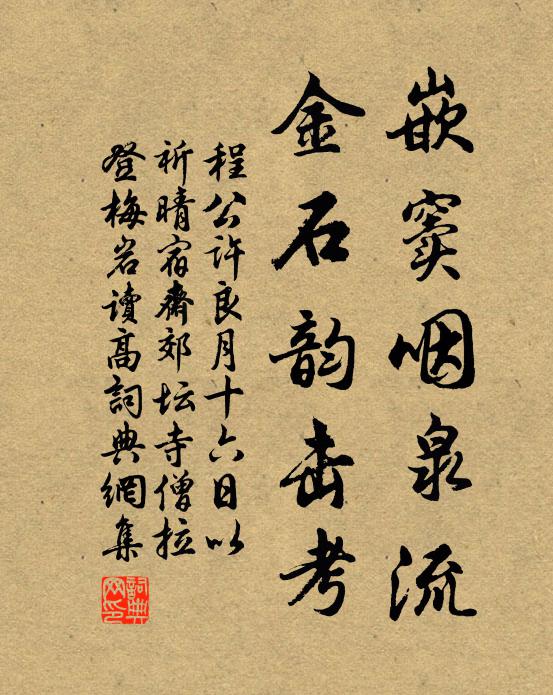 嵌窦咽泉流
金石韵击考
程公许良月十六日以
祈晴宿齋郊坛寺僧拉
登梅岩讀高詞典網集
詞典网印